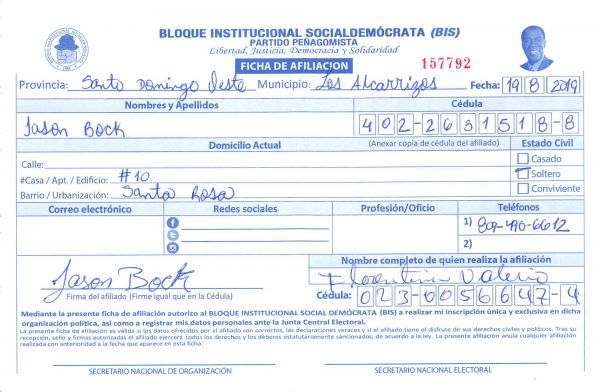 BLOQUE INSTITUCIONAL SOCIALDEMÓCRATA (BIS)
PARTIDO PEÑAGOMISTA
Libertad, Justicia, Democracia y Solidaridad
FICHA DE AFILIACION
157792
Provincia: Santo Domingo Oeste Municipio: Los Alcarrizos Fecha: 19 8 2019
Nombres y Apellidos Cédula
Jason Bock 402-2631518-8
Domicilio Actual (Anexar copia de cédula del afiliado) Estado Civil
Calle: Casado
#Casa / Apt. / Edificio: #10 Soltero
Barrio / Urbanización: Santa Rosa Conviviente
Correo electrónico Redes sociales Profesión/Oficio Teléfonos
1) 809-490-6612
2)
Nombre completo de quien realiza la afiliación
Jason Bock Florentino Valerio
Firma del afiliado (Firme igual que en la Cédula) Cédula: 023-0056647-4
Mediante la presente ficha de afiliación autorizo al BLOQUE INSTITUCIONAL SOCIAL DEMÓCRATA (BIS) a realizar mi inscripción única y exclusiva en dicha
organización política, así como a registrar mis datos personales ante la Junta Central Electoral.
La presente ficha de afiliación es válida si los datos ofrecidos por el afiliado son correctos, las declaraciones veraces y si el afiliado tiene el disfrute de sus derechos civiles y políticos. Tras su
recepción, sello y firmas autorizadas el afiliado ejercerá todos los derechos y los deberes estatutariamente sancionados, de acuerdo a la ley. La presente afiliación anula cualquier afiliación
realizada con anterioridad a la fecha que aparece en esta ficha.
SECRETARIO NACIONAL DE ORGANIZACIÓN SECRETARIO NACIONAL ELECTORAL